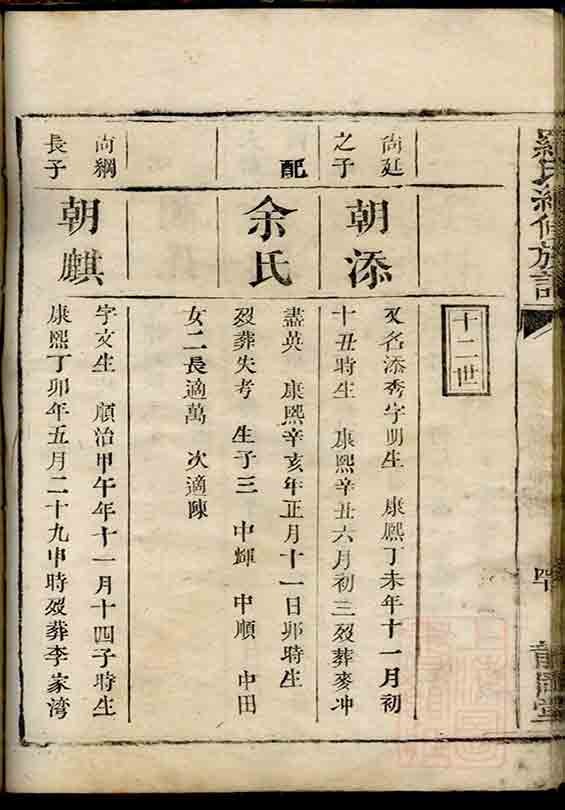 羅氏續修族譜
十二世
尚廷
之子
朝添
又名添秀字明生 康熙丁未年十一月初
十丑時生 康熙辛丑六月初三歿葬麥冲
配
余氏
盡英 康熙辛亥年正月十一日卯時生
歿葬失考 生子三 中輝 中順 中田
女二長適萬 次適陳
尚綱
長子
朝麒
字文生 順治甲午年十一月十四子時生
康熙丁卯年五月二十九申時歿葬李家湾